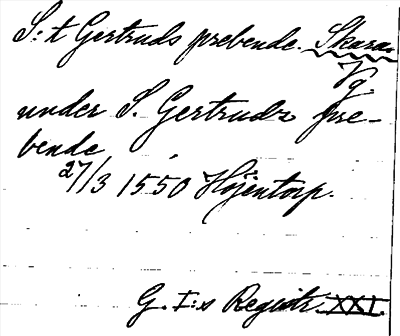 S:t Gertruds prebende. Skara.
Vg.
under S. Gertruds pre-
bende
27/3 1550 Höjentorp.
G. I:s Registr. XXI.